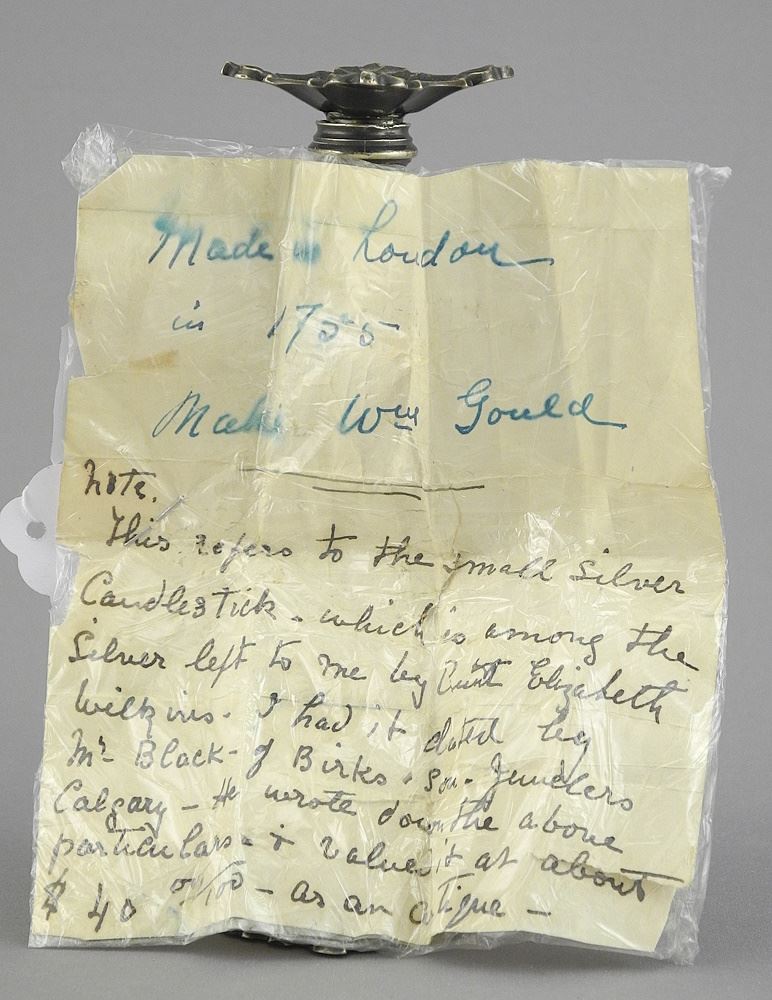 Made in London
in 1755
Make Wm Gould
Note.
This refers to the small Silver
Candlestick - which is among the
Silver left to me by Aunt Elizabeth
Wilkins. I had it dated by
Mr Black - of Birks & Son - Jewelers
Calgary - He wrote down the above
particulars - & valued it at about
$ 40 00/100 - as an atique -